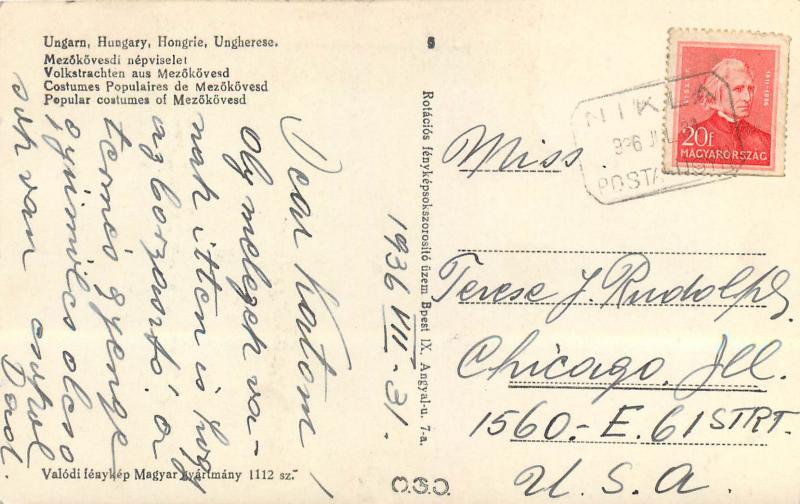 Ungarn, Hungary, Hongrie, Ungherese.
Mezőkövesdi népviselet
Volkstrachten aus Mezőkövesd
Costumes Populaires de Mezőkövesd
Popular costumes of Mezőkövesd
Dear Katom!
Oly melegek va-
nak itten is hogy
az borzasztó. a
termés gyenge
gyümölcs olcso
sok van
Dad.
1936 VII-31.
Valódi fénykép Magyar gyártmány 1112 sz.
Rotációs fényképsokszorositó üzem Bpest IX. Angyal-u. 7-a.
O.S.O.
NIKLA
936 JUL
20f
MAGYARORSZÁG
Miss.
Terese J. Rudolph,
Chicago. Ill.
1560.- E. 61 STRT.
U. S. A.